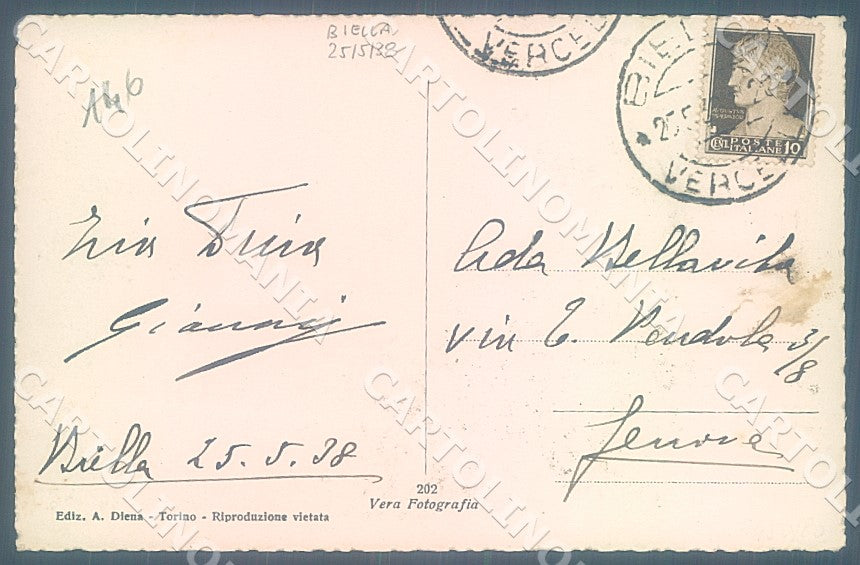 BIELLA
25/5/38
146
VERCEL
BIEL
25.5
VERCEL
POSTE
ITALIANE
CENT. 10
Zia Dria
Gianny
Biella 25.5.38
Aida Bellavita
via E. Vendola 3/8
Genova
202
Vera Fotografia
Ediz. A. Diena - Torino - Riproduzione vietata
CARTOLINOMANIA